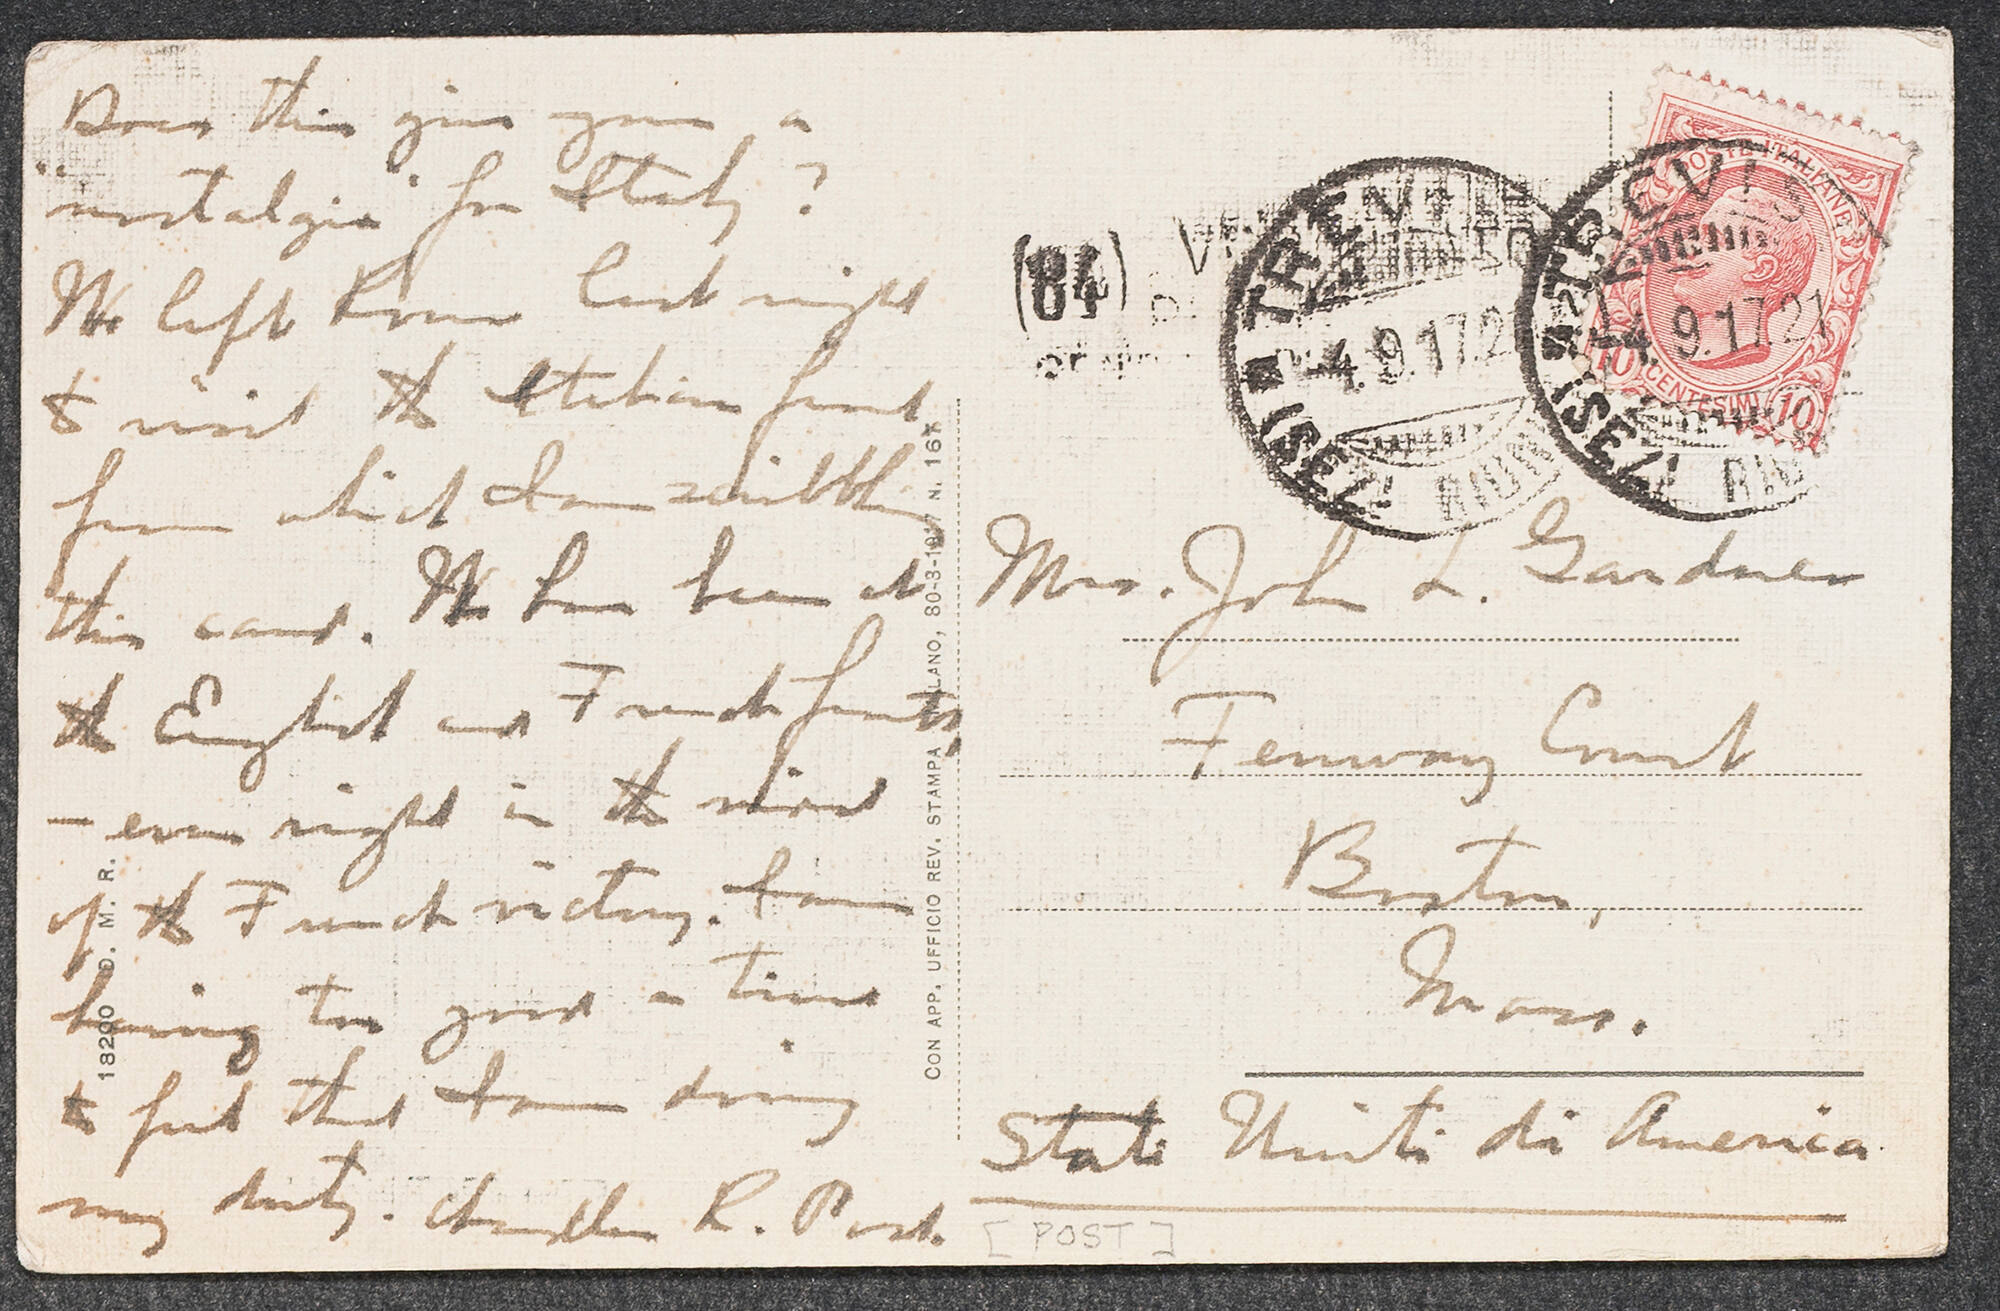 Does this give you a
"nostalgia" for Italy?
We left Rome last night
to visit the Italian front
from which I am scribbling
this card. We have been at
the English and French fronts,
— even right in the midst
of the French victory. I am
having too good a time
to feel that I am doing
my duty. Chandler R. Post.
18200 D. M. R.
CON APP. UFFICIO REV. STAMPA MILANO, 80-3-1917 N. 167
(84)
TREVISO
4.9.17 21
TREVISO
4.9.17 21
POSTE ITALIANE
10 CENTESIMI 10
Mrs. John L. Gardner
Fenway Court
Boston,
Mass.
Stati Uniti di America
[POST]